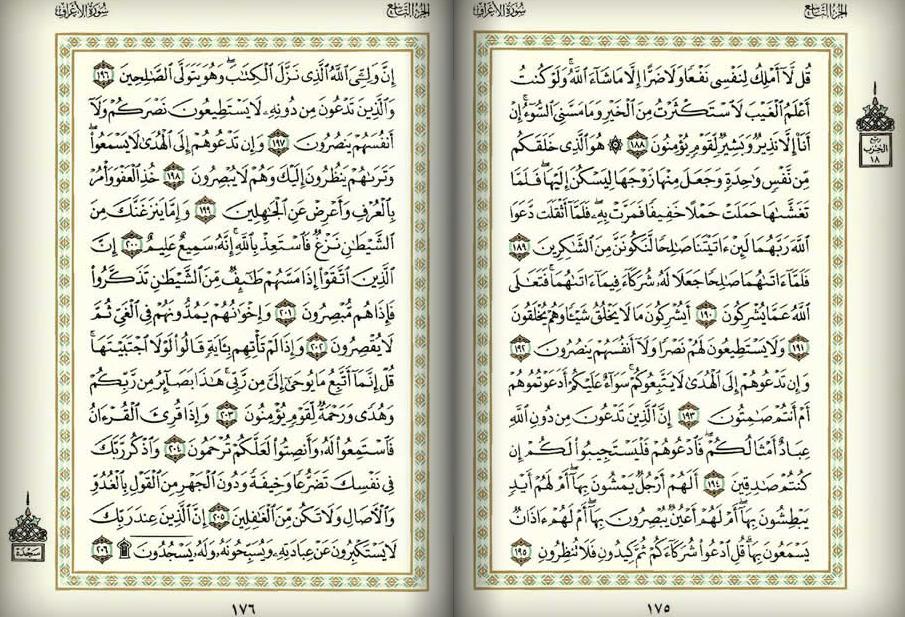 الجزء التاسع
سورة الأعراف
قُل لَّآ أَمْلِكُ لِنَفْسِى نَفْعًا وَلَا ضَرًّا إِلَّا مَا شَآءَ ٱللَّهُ ۚ وَلَوْ كُنتُ
أَعْلَمُ ٱلْغَيْبَ لَٱسْتَكْثَرْتُ مِنَ ٱلْخَيْرِ وَمَا مَسَّنِىَ ٱلسُّوٓءُ ۚ إِنْ
أَنَا۠ إِلَّا نَذِيرٌ وَبَشِيرٌ لِّقَوْمٍ يُؤْمِنُونَ ١٨٨ ۞ هُوَ ٱلَّذِى خَلَقَكُم
مِّن نَّفْسٍ وَٰحِدَةٍ وَجَعَلَ مِنْهَا زَوْجَهَا لِيَسْكُنَ إِلَيْهَا ۖ فَلَمَّا
تَغَشَّىٰهَا حَمَلَتْ حَمْلًا خَفِيفًا فَمَرَّتْ بِهِۦ ۖ فَلَمَّآ أَثْقَلَت دَّعَوَا
ٱللَّهَ رَبَّهُمَا لَئِنْ ءَاتَيْتَنَا صَٰلِحًا لَّنَكُونَنَّ مِنَ ٱلشَّٰكِرِينَ ١٨٩
فَلَمَّآ ءَاتَىٰهُمَا صَٰلِحًا جَعَلَا لَهُۥ شُرَكَآءَ فِيمَآ ءَاتَىٰهُمَا ۚ فَتَعَٰلَى
ٱللَّهُ عَمَّا يُشْرِكُونَ ١٩٠ أَيُشْرِكُونَ مَا لَا يَخْلُقُ شَيْـًٔا وَهُمْ يُخْلَقُونَ
١٩١ وَلَا يَسْتَطِيعُونَ لَهُمْ نَصْرًا وَلَآ أَنفُسَهُمْ يَنصُرُونَ ١٩٢
وَإِن تَدْعُوهُمْ إِلَى ٱلْهُدَىٰ لَا يَتَّبِعُوكُمْ ۚ سَوَآءٌ عَلَيْكُمْ أَدَعَوْتُمُوهُمْ
أَمْ أَنتُمْ صَٰمِتُونَ ١٩٣ إِنَّ ٱلَّذِينَ تَدْعُونَ مِن دُونِ ٱللَّهِ
عِبَادٌ أَمْثَالُكُمْ ۖ فَٱدْعُوهُمْ فَلْيَسْتَجِيبُوا۟ لَكُمْ إِن
كُنتُمْ صَٰدِقِينَ ١٩٤ أَلَهُمْ أَرْجُلٌ يَمْشُونَ بِهَآ ۖ أَمْ لَهُمْ أَيْدٍ
يَبْطِشُونَ بِهَآ ۖ أَمْ لَهُمْ أَعْيُنٌ يُبْصِرُونَ بِهَآ ۖ أَمْ لَهُمْ ءَاذَانٌ
يَسْمَعُونَ بِهَا ۗ قُلِ ٱدْعُوا۟ شُرَكَآءَكُمْ ثُمَّ كِيدُونِ فَلَا تُنظِرُونِ ١٩٥
ربع
الحزب
١٨
١٧٥
الجزء التاسع
سورة الأعراف
إِنَّ وَلِـِّۧىَ ٱللَّهُ ٱلَّذِى نَزَّلَ ٱلْكِتَٰبَ ۖ وَهُوَ يَتَوَلَّى ٱلصَّٰلِحِينَ ١٩٦
وَٱلَّذِينَ تَدْعُونَ مِن دُونِهِۦ لَا يَسْتَطِيعُونَ نَصْرَكُمْ وَلَآ
أَنفُسَهُمْ يَنصُرُونَ ١٩٧ وَإِن تَدْعُوهُمْ إِلَى ٱلْهُدَىٰ لَا يَسْمَعُوا۟ ۖ
وَتَرَىٰهُمْ يَنظُرُونَ إِلَيْكَ وَهُمْ لَا يُبْصِرُونَ ١٩٨ خُذِ ٱلْعَفْوَ وَأْمُرْ
بِٱلْعُرْفِ وَأَعْرِضْ عَنِ ٱلْجَٰهِلِينَ ١٩٩ وَإِمَّا يَنزَغَنَّكَ مِنَ
ٱلشَّيْطَٰنِ نَزْغٌ فَٱسْتَعِذْ بِٱللَّهِ ۚ إِنَّهُۥ سَمِيعٌ عَلِيمٌ ٢٠٠ إِنَّ
ٱلَّذِينَ ٱتَّقَوْا۟ إِذَا مَسَّهُمْ طَٰٓئِفٌ مِّنَ ٱلشَّيْطَٰنِ تَذَكَّرُوا۟
فَإِذَا هُم مُّبْصِرُونَ ٢٠١ وَإِخْوَٰنُهُمْ يَمُدُّونَهُمْ فِى ٱلْغَىِّ ثُمَّ
لَا يُقْصِرُونَ ٢٠٢ وَإِذَا لَمْ تَأْتِهِم بِـَٔايَةٍ قَالُوا۟ لَوْلَا ٱجْتَبَيْتَهَا ۚ
قُلْ إِنَّمَآ أَتَّبِعُ مَا يُوحَىٰٓ إِلَىَّ مِن رَّبِّى ۚ هَٰذَا بَصَآئِرُ مِن رَّبِّكُمْ
وَهُدًى وَرَحْمَةٌ لِّقَوْمٍ يُؤْمِنُونَ ٢٠٣ وَإِذَا قُرِئَ ٱلْقُرْءَانُ
فَٱسْتَمِعُوا۟ لَهُۥ وَأَنصِتُوا۟ لَعَلَّكُمْ تُرْحَمُونَ ٢٠٤ وَٱذْكُر رَّبَّكَ
فِى نَفْسِكَ تَضَرُّعًا وَخِيفَةً وَدُونَ ٱلْجَهْرِ مِنَ ٱلْقَوْلِ بِٱلْغُدُوِّ
وَٱلْـَٔاصَالِ وَلَا تَكُن مِّنَ ٱلْغَٰفِلِينَ ٢٠٥ إِنَّ ٱلَّذِينَ عِندَ رَبِّكَ
لَا يَسْتَكْبِرُونَ عَنْ عِبَادَتِهِۦ وَيُسَبِّحُونَهُۥ وَلَهُۥ يَسْجُدُونَ ۩ ٢٠٦
سجدة
١٧٦